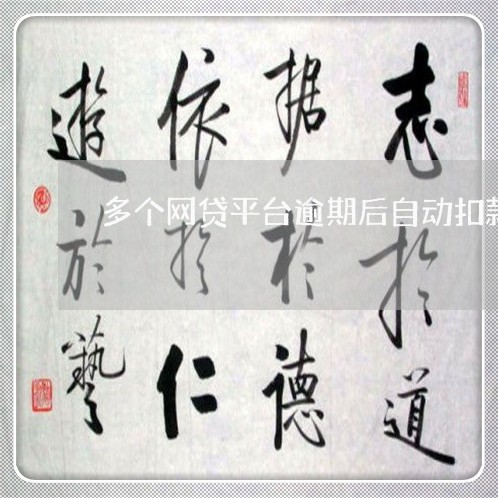 志於道
据於德
依於仁
遊於藝
多个网贷平台逾期后自动扣款